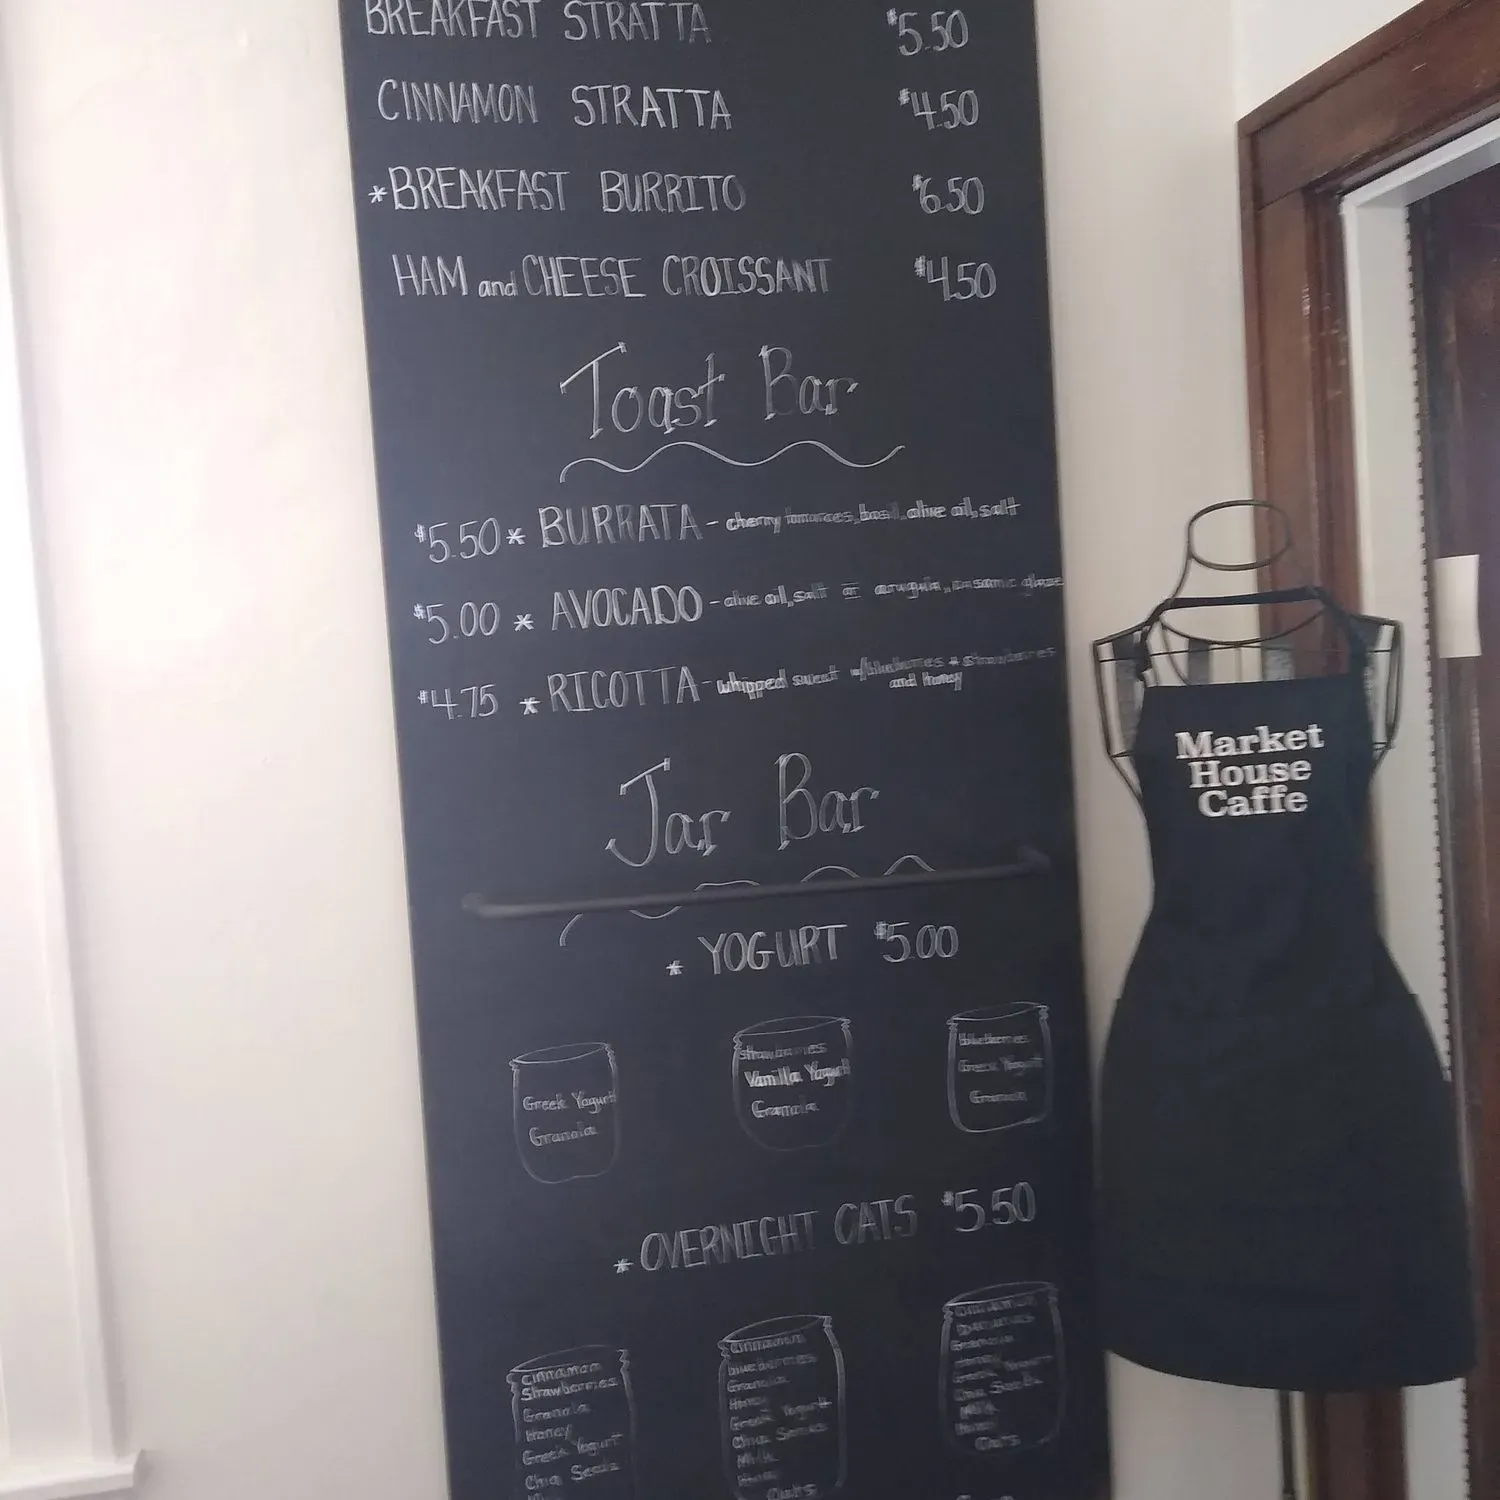 BREAKFAST STRATTA $5.50
CINNAMON STRATTA $4.50
*BREAKFAST BURRITO $6.50
HAM and CHEESE CROISSANT $4.50
Toast Bar
$5.50 * BURRATA - cherry tomatoes, basil, olive oil, salt
$5.00 * AVOCADO - olive oil, salt or arugula, balsamic glaze
$4.75 * RICOTTA - whipped sweet w/blueberries + strawberries
and honey
Jar Bar
* YOGURT $5.00
Greek Yogurt
Granola
strawberries
Vanilla Yogurt
Granola
blueberries
Greek Yogurt
Granola
* OVERNIGHT OATS $5.50
cinnamon
Strawberries
Granola
Honey
Greek Yogurt
Chia Seeds
cinnamon
blueberries
Granola
Honey
Greek Yogurt
Chia Seeds
Milk
Oats
cinnamon
Bananas
Granola
Honey
Greek Yogurt
Chia Seeds
Milk
Oats
Market
House
Caffe